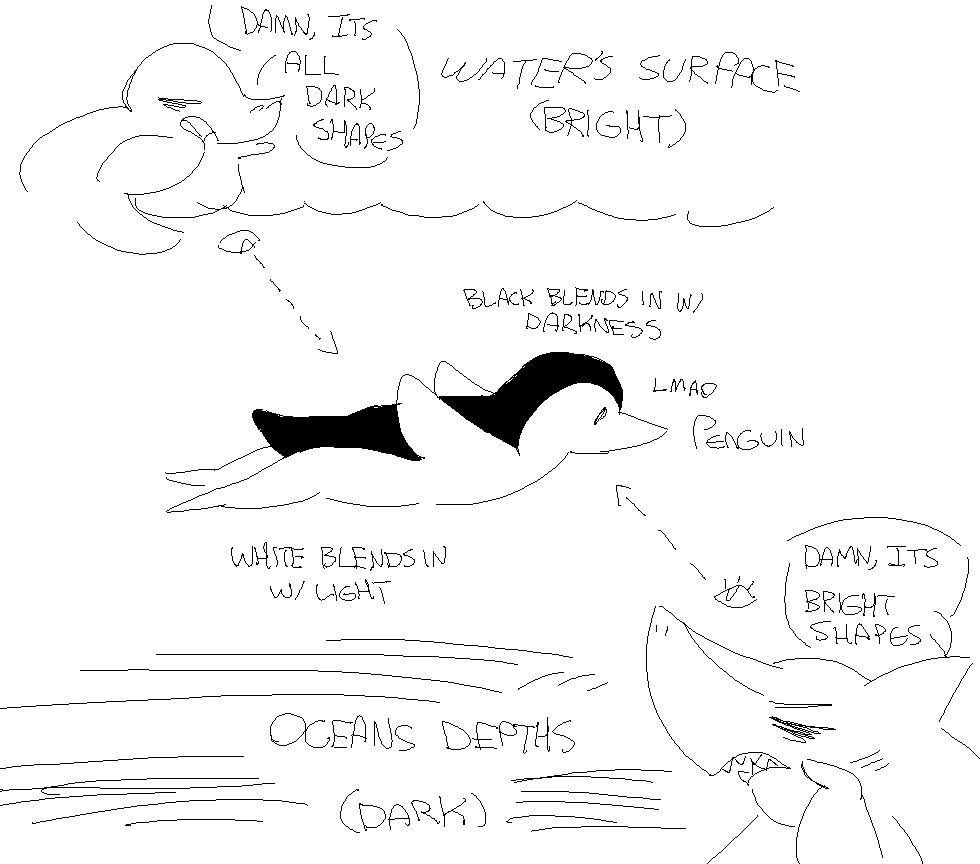 DAMN, ITS
ALL
DARK
SHAPES
WATER'S SURFACE
(BRIGHT)
BLACK BLENDS IN W/
DARKNESS
LMAO
PENGUIN
WHITE BLENDS IN
W/ LIGHT
DAMN, ITS
BRIGHT
SHAPES
OCEANS DEPTHS
(DARK)